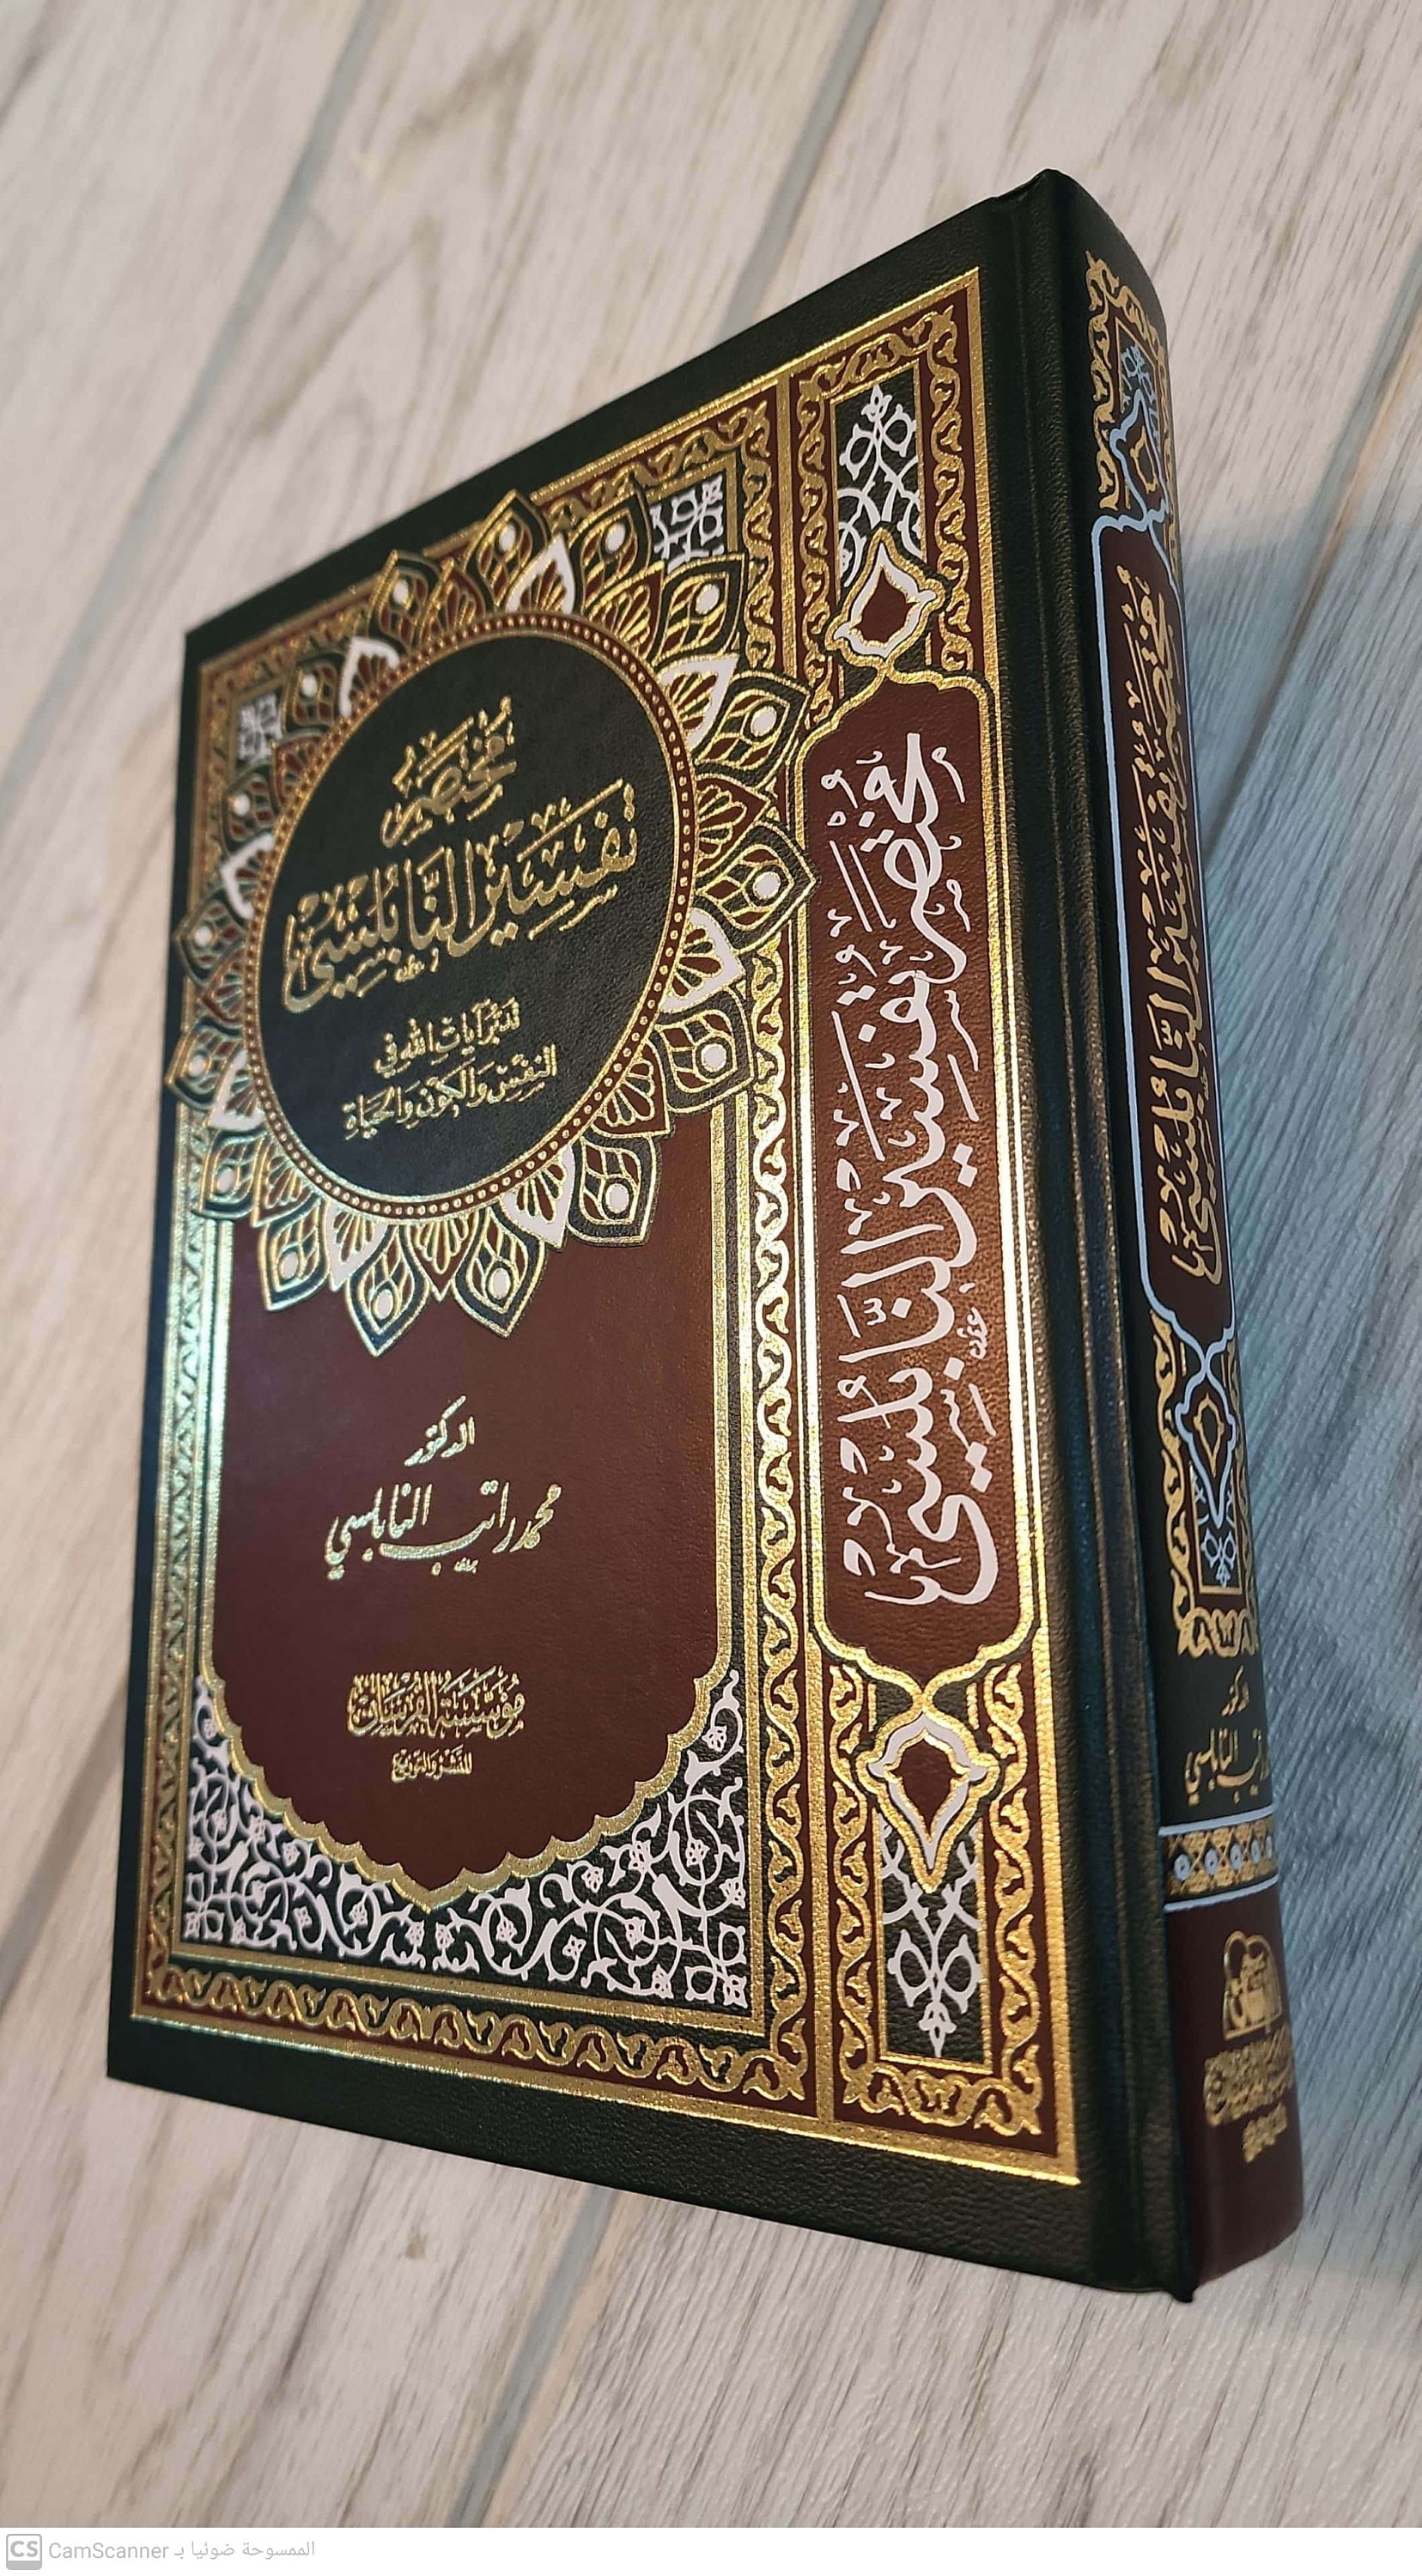 مُخْتَصَرُ
تَفْسِيْرِ النَّابُلْسِيِّ
تدبر آيات الله في
النفس والكون والحياة
الدكتور
محمد راتب النابلسي
مؤسسة الفرسان
للنشر والتوزيع
مُخْتَصَرُ تَفْسِيْرِ النَّابُلْسِيِّ
مُخْتَصَرُ تَفْسِيْرِ النَّابُلْسِيِّ
الدكتور
راتب النابلسي
CS CamScanner الممسوحة ضوئيا بـ